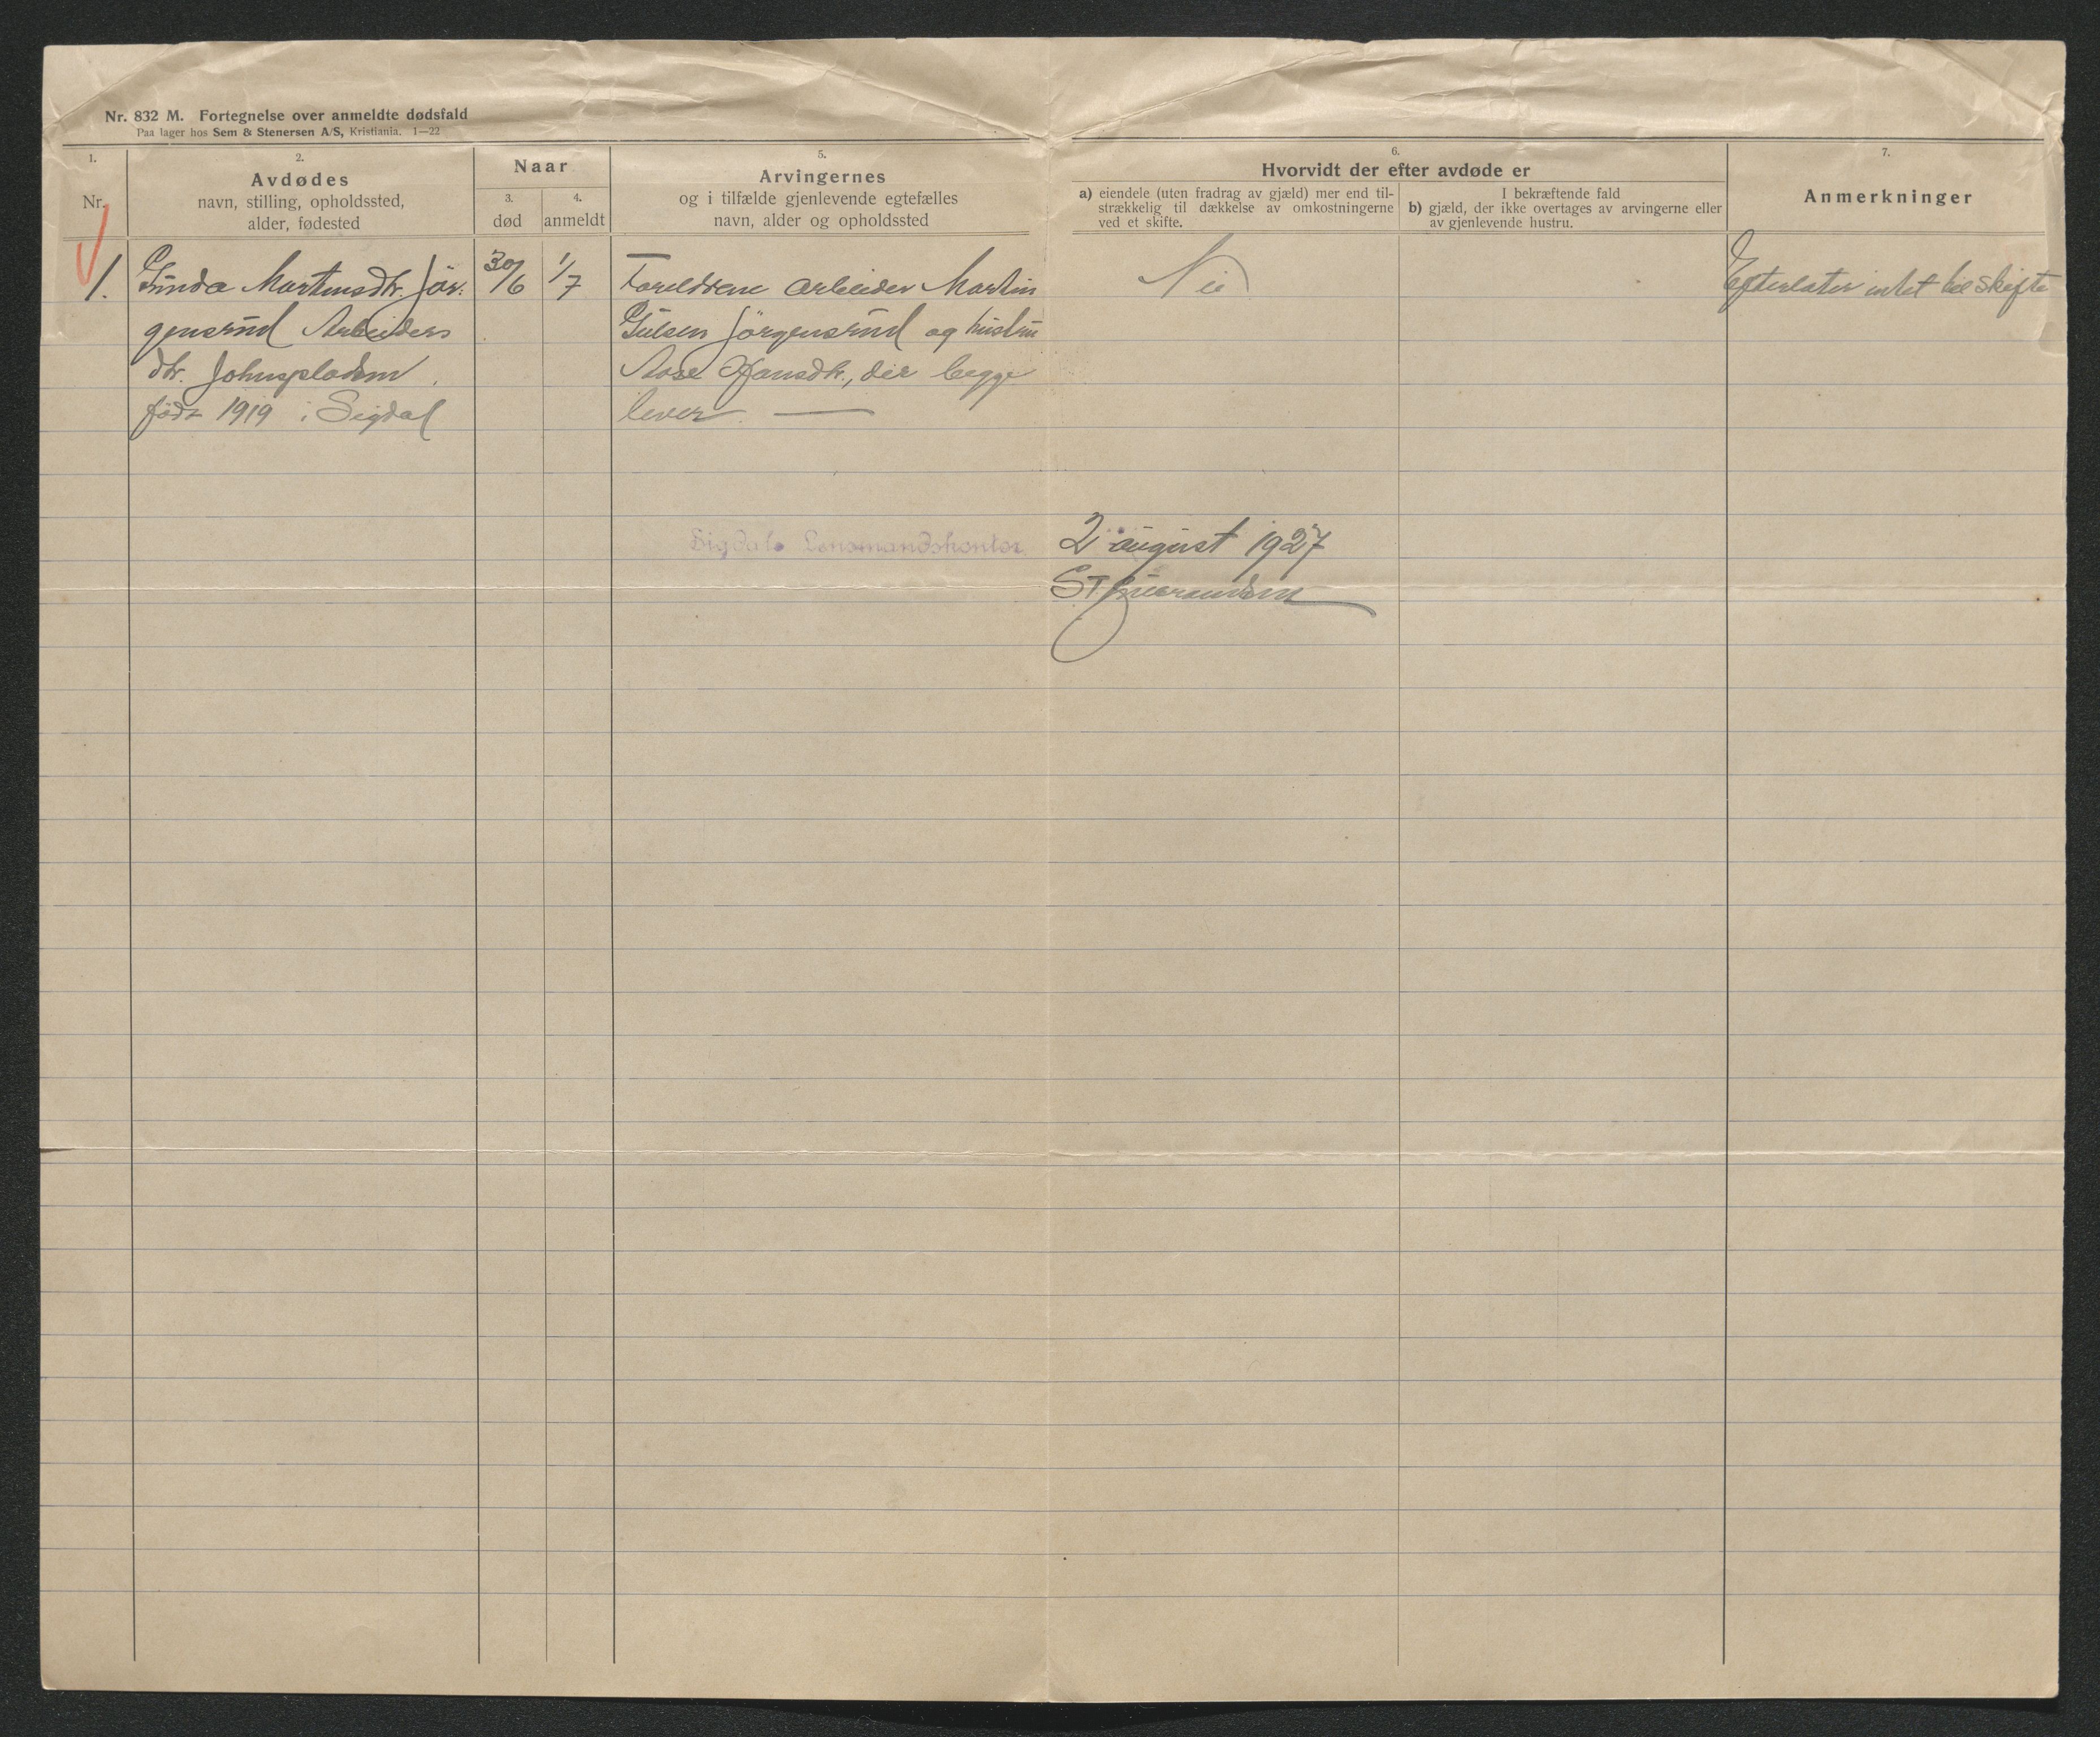 Nr. 832 M. Fortegnelse over anmeldte dødsfald
Paa lager hos Sem & Stenersen A/S, Kristiania. 1—22
1.
Nr.
2.
Avdødes
navn, stilling, opholdssted,
alder, fødested
Naar
3.
død
4.
anmeldt
5.
Arvingernes
og i tilfælde gjenlevende egtefælles
navn, alder og opholdssted
6.
Hvorvidt der efter avdøde er
a) eiendele (uten fradrag av gjæld) mer end til-
strækkelig til dækkelse av omkostningerne
ved et skifte.
I bekræftende fald
b) gjæld, der ikke overtages av arvingerne eller
av gjenlevende hustru.
7.
Anmerkninger
1.
Gunda Martinsdtr. Jör-
gensrud Arbeiders
dtr. Johnspladsen
född 1919 i Sigdal
30/6
1/7
Foreldrene arbeider Martin
Gulsen Jörgensrud og hustru
Aase Hansdtr., der begge
lever
Nei
Efterlater intet til skifte
Sigdals Lensmandskontor
2 august 1927